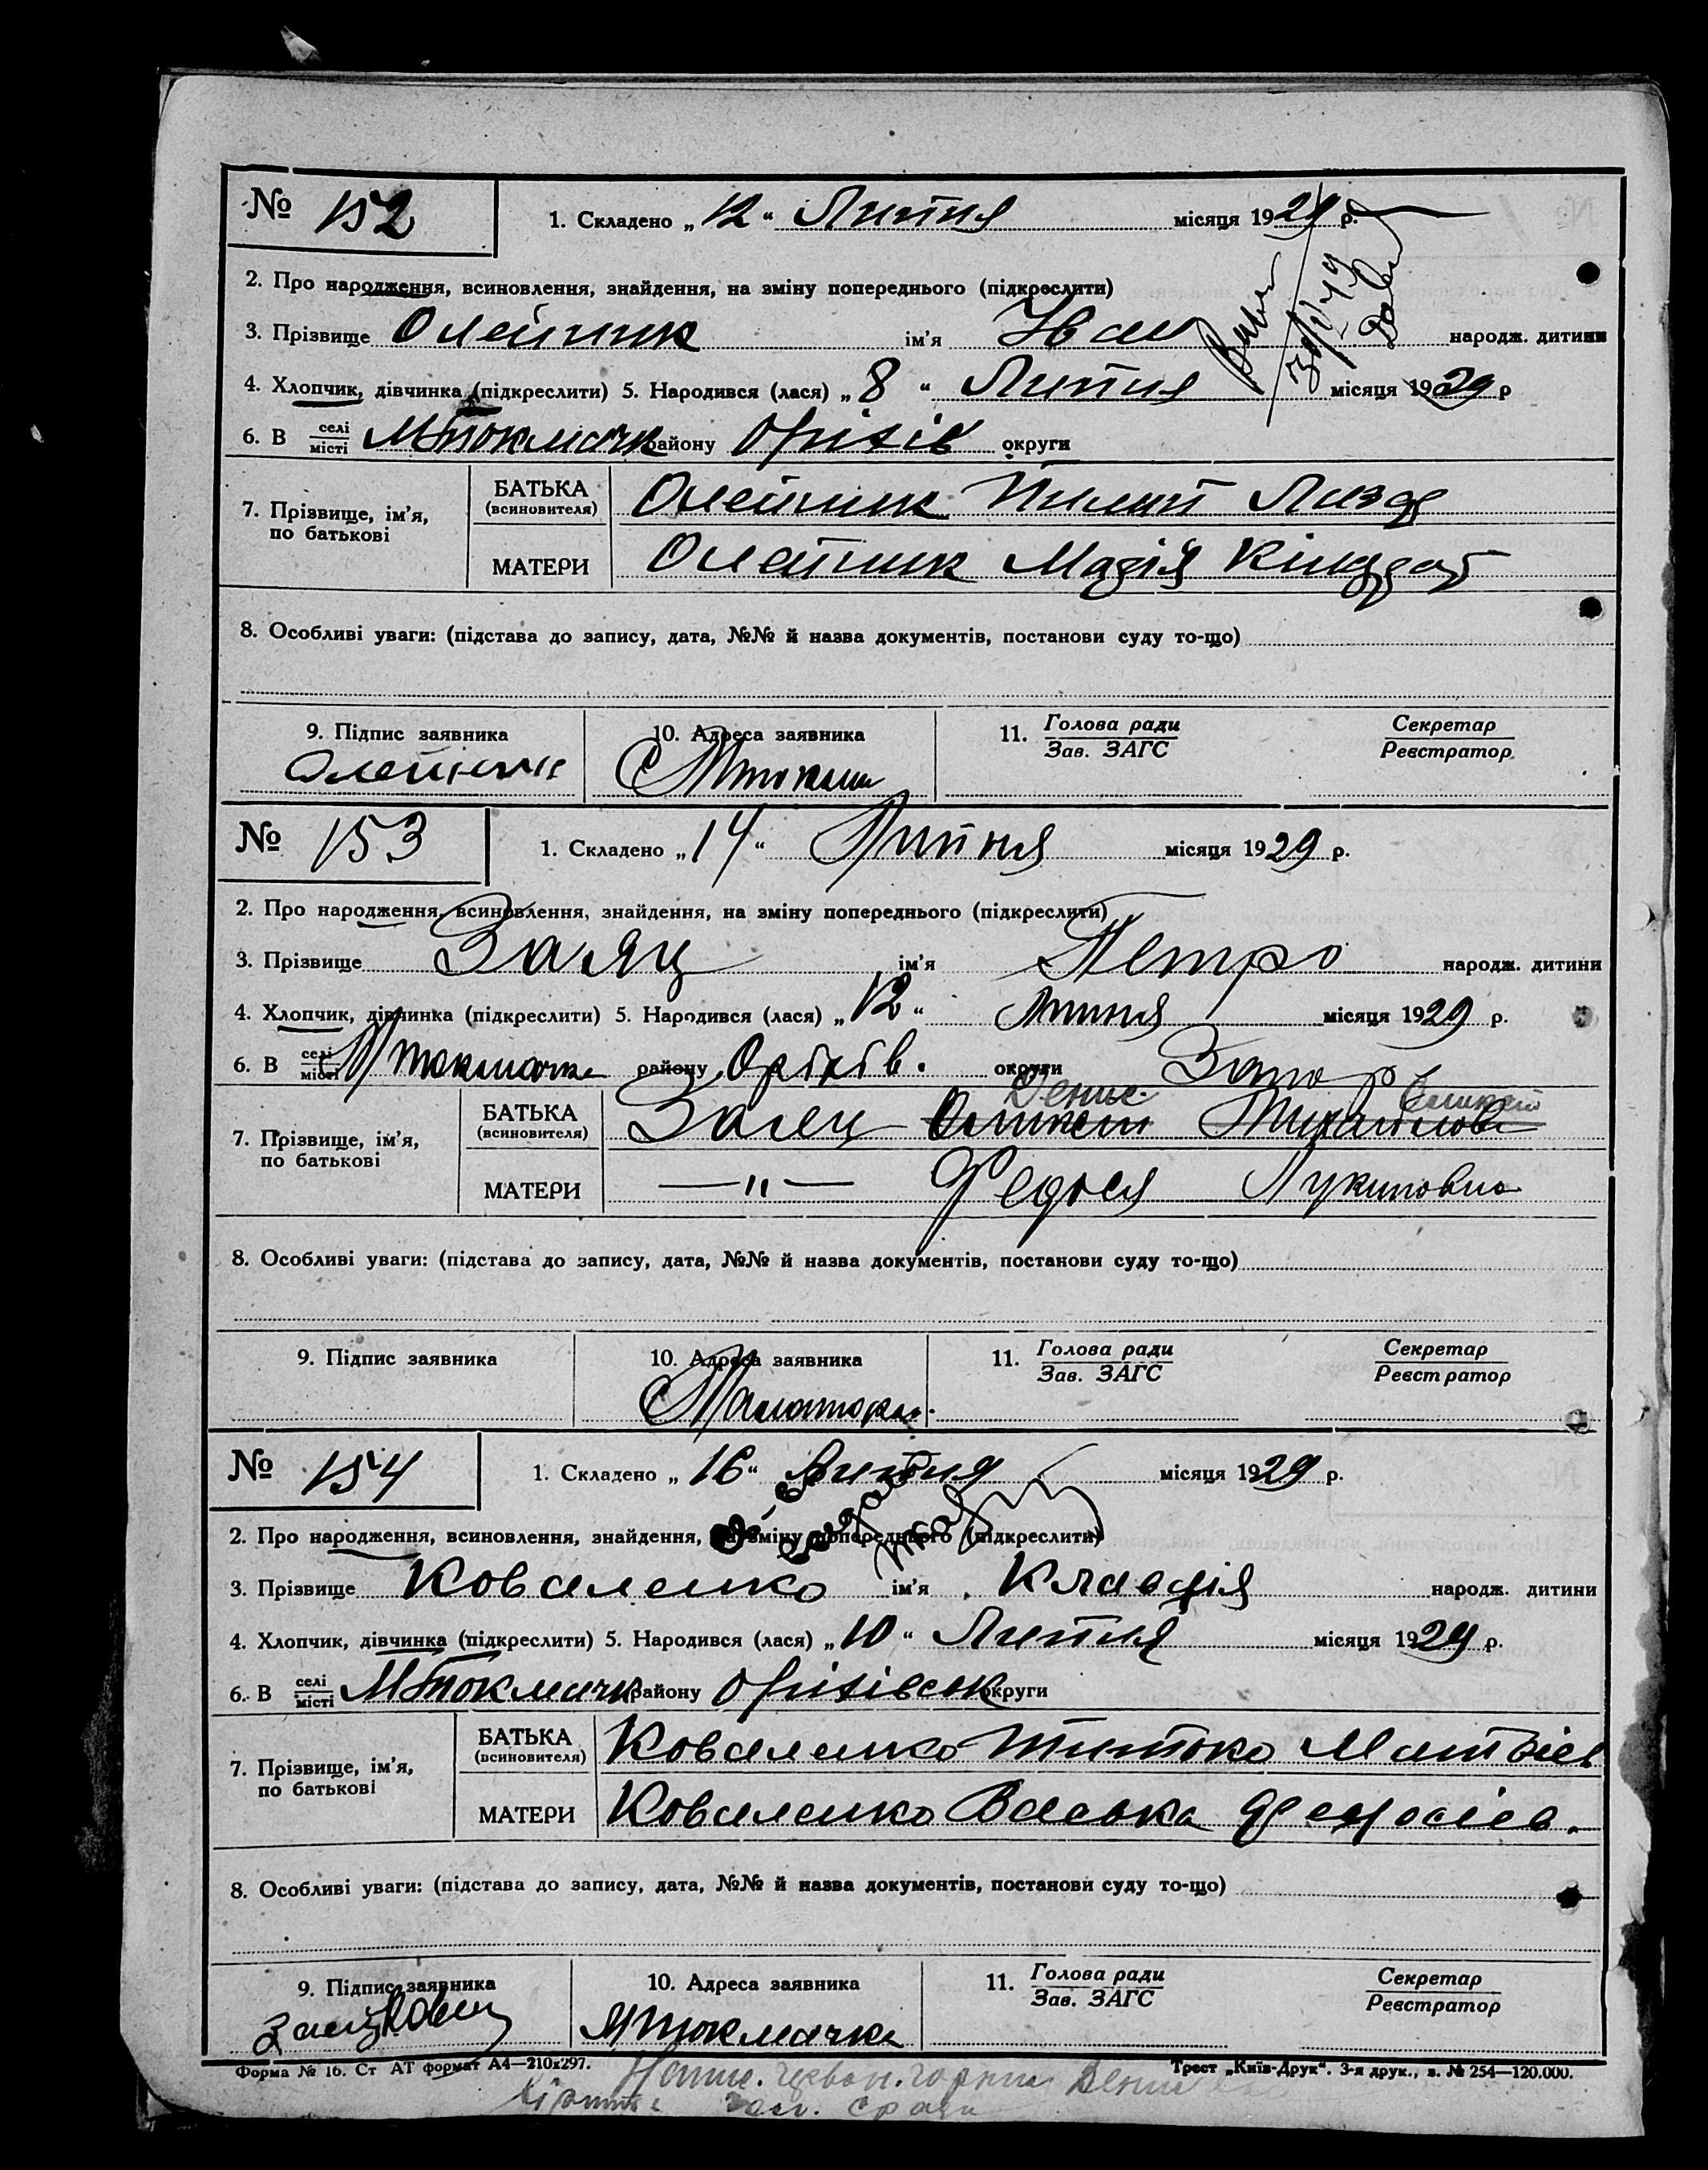 № 152
1. Складено „12“ Липня місяця 1929 р.
2. Про народження, всиновлення, знайдення, на зміну попереднього (підкреслити)
3. Прізвище Олейник ім'я Иван народж. дитини
4. Хлопчик, дівчинка (підкреслити) 5. Народився (лася) „8“ Липня місяця 1929 р
6. В селі/місті МТокмачк району Оріхів округи
7. Прізвище, ім'я, по батькові
БАТЬКА (всиновителя) Олейник Пилип
МАТЕРИ Олейник Марія Кіндрат
8. Особливі уваги: (підстава до запису, дата, №№ й назва документів, постанови суду то-що)
9. Підпис заявника 10. Адреса заявника 11. Голова ради/Зав. ЗАГС Секретар/Реєстратор
Олейник С МТокмач
№ 153
1. Складено „14“ Липня місяця 1929 р.
2. Про народження, всиновлення, знайдення, на зміну попереднього (підкреслити)
3. Прізвище Заяц ім'я Петро народж. дитини
4. Хлопчик, дівчинка (підкреслити) 5. Народився (лася) „12“ Липня місяця 1929 р.
6. В селі/місті МТокмачка району Оріхів. округи Запор
Денис
7. Прізвище, ім'я, по батькові
БАТЬКА (всиновителя) Заяц Михайлов
МАТЕРИ —„— Федося Лукиновна
8. Особливі уваги: (підстава до запису, дата, №№ й назва документів, постанови суду то-що)
9. Підпис заявника 10. Адреса заявника 11. Голова ради/Зав. ЗАГС Секретар/Реєстратор
№ 154
1. Складено „16“ Липня місяця 1929 р.
2. Про народження, всиновлення, знайдення, на зміну попереднього (підкреслити)
3. Прізвище Коваленко ім'я Клавдія народж. дитини
4. Хлопчик, дівчинка (підкреслити) 5. Народився (лася) „10“ Липня місяця 1929 р.
6. В селі/місті МТокмачк району Оріхівськ округи
7. Прізвище, ім'я, по батькові
БАТЬКА (всиновителя) Коваленко Тимошко Матвіев
МАТЕРИ Коваленко Васька Федосієв.
8. Особливі уваги: (підстава до запису, дата, №№ й назва документів, постанови суду то-що)
9. Підпис заявника 10. Адреса заявника 11. Голова ради/Зав. ЗАГС Секретар/Реєстратор
МТокмачка
Форма № 16. Ст АТ формат А4—210x297. Трест „Київ-Друк“. 3-я друк., з. № 254—120.000.